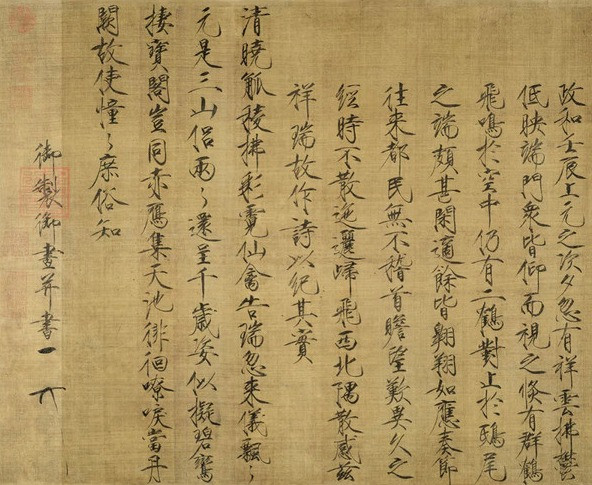 政和壬辰上元之次夕忽有祥雲拂鬱
低映端門衆皆仰而視之倏有群鶴
飛鳴於空中仍有二鶴對止於鴟尾
之端頗甚閑適餘皆翱翔如應奏節
往来都民無不稽首瞻望歎異久之
經時不散迤邐歸飛西北隅散感兹
祥瑞故作詩以紀其實
清曉觚稜拂彩霓仙禽告瑞忽来儀飄〻
元是三山侣兩〻還呈千歳姿似擬碧鸞
棲寳閣豈同赤鴈集天池徘徊嘹唳當丹
闕故使憧〻庶俗知
御製御畫并書